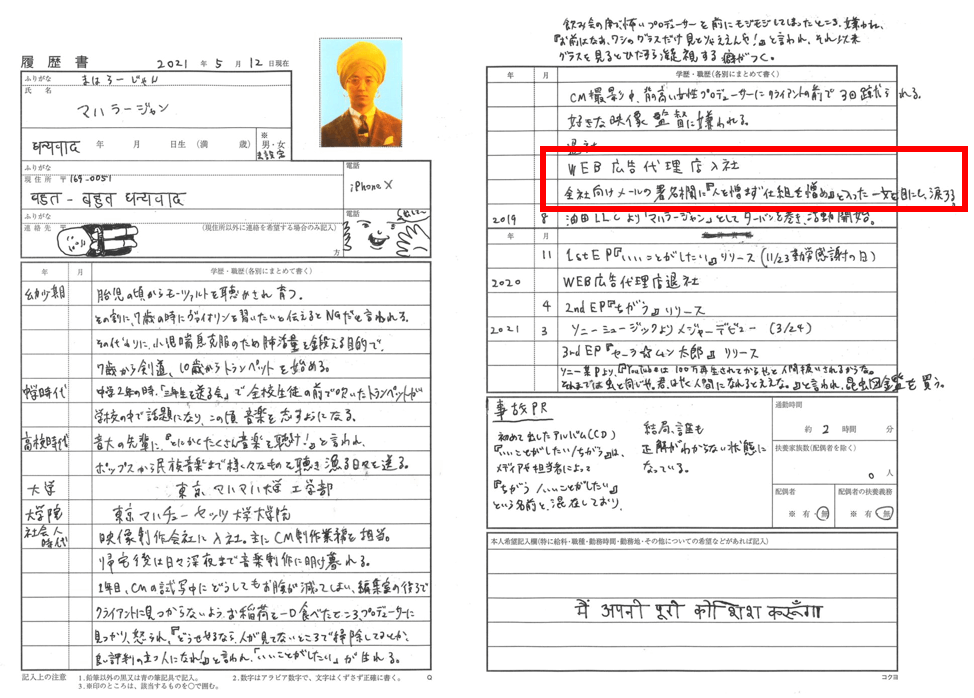 履歴書
2021 年 5 月 12 日現在
ふりがな まはろーじゃん
氏名
マハラージャン
धन्यवाद 年 月 日生 (満 歳)
※
男・女
未設定
ふりがな
現住所 〒169-0051
बहुत - बहुत धन्यवाद
電話
iPhone X
ふりがな
連絡先 〒 (現住所以外に連絡を希望する場合のみ記入)
方
電話
年 月 学歴・職歴(各別にまとめて書く)
幼少期 胎児の頃からモーツァルトを聴かされ育つ。
その割に、7歳の時にヴァイオリンを習いたいと伝えるとNGだと言われる。
その代わりに、小児喘息克服のため肺活量を鍛える目的で、
7歳から剣道、10歳からトランペットを始める。
中学時代 中学2年の時、「三年生を送る会」で全校生徒の前で吹いたトランペットが
学校の中で話題になり、この頃音楽を志すようになる。
高校時代 音大の先輩に、『とにかくたくさん音楽を聴け!』と言われ、
ポップスから民族音楽まで様々なものを聴き漁る日々を送る。
大学 東京マハマハ大学 工学部
大学院 東京マハチューセッツ大学大学院
社会人時代 映像制作会社に入社。主にCM制作業務を担当。
帰宅後は日々深夜まで音楽制作に明け暮れる。
1年目、CMの試写中にどうしてもお腹が減ってしまい、編集室の後ろで
クライアントに見つからないようお稲荷を一口食べたところ、プロデューサーに
見つかり、怒られ、『どうせやるなら、人が見てないところで掃除してるとか、
良い評判の立つ人になれ!』と言われ、「いいことがしたい」が生れる。
記入上の注意 1.鉛筆以外の黒又は青の筆記具で記入。 2.数字はアラビア数字で、文字はくずさず正確に書く。
3.※印のところは、該当するものを○で囲む。
飲み会の席で怖いプロデューサーを前にモジモジしてしまったところ、嫌われ、
『お前はなあ、ワシのグラスだけ見とりゃええんや!』と言われ、それ以来
グラスを見るとひたすら凝視する癖がつく。
年 月 学歴・職歴(各別にまとめて書く)
CM撮影中、背の高い女性プロデューサーにクライアントの前で3回蹴られる。
好きな映像監督に嫌われる。
退社
WEB広告代理店入社
全社向けメールの署名欄に『人を憎まず仕組を憎め』と入った一文を目にし、涙する。
2019 8 油田LLCより「マハラージャン」としてターバンを巻き、活動開始。
年 月
11 1st EP『いいことがしたい』リリース (11/23勤労感謝の日)
2020 WEB広告代理店退社
4 2nd EP『ちがう』リリース
2021 3 ソニーミュージックよりメジャーデビュー (3/24)
3rd EP『セーラ☆ムン太郎』リリース
ソニー某Pより、『YouTubeは100万再生されてからやっと人間扱いされるからな。
それまでは虫と同じや。君ははやく人間になれるとええな。』と言われ、昆虫図鑑を買う。
事故PR
初めて出したアルバム(CD)
『いいことがしたい/ちがう』は、
メディアや担当者によって
『ちがう/いいことがしたい』
という名前と、混在しており、
結局、誰も
正解がわからない状態に
なっている。
通勤時間
約 2 時間 分
扶養家族数(配偶者を除く)
0 人
配偶者
※ 有・無
配偶者の扶養義務
※ 有・無
本人希望記入欄(特に給料・職種・勤務時間・勤務地・その他についての希望などがあれば記入)
मैं अपनी पूरी कोशिश करूँगा
コクヨ